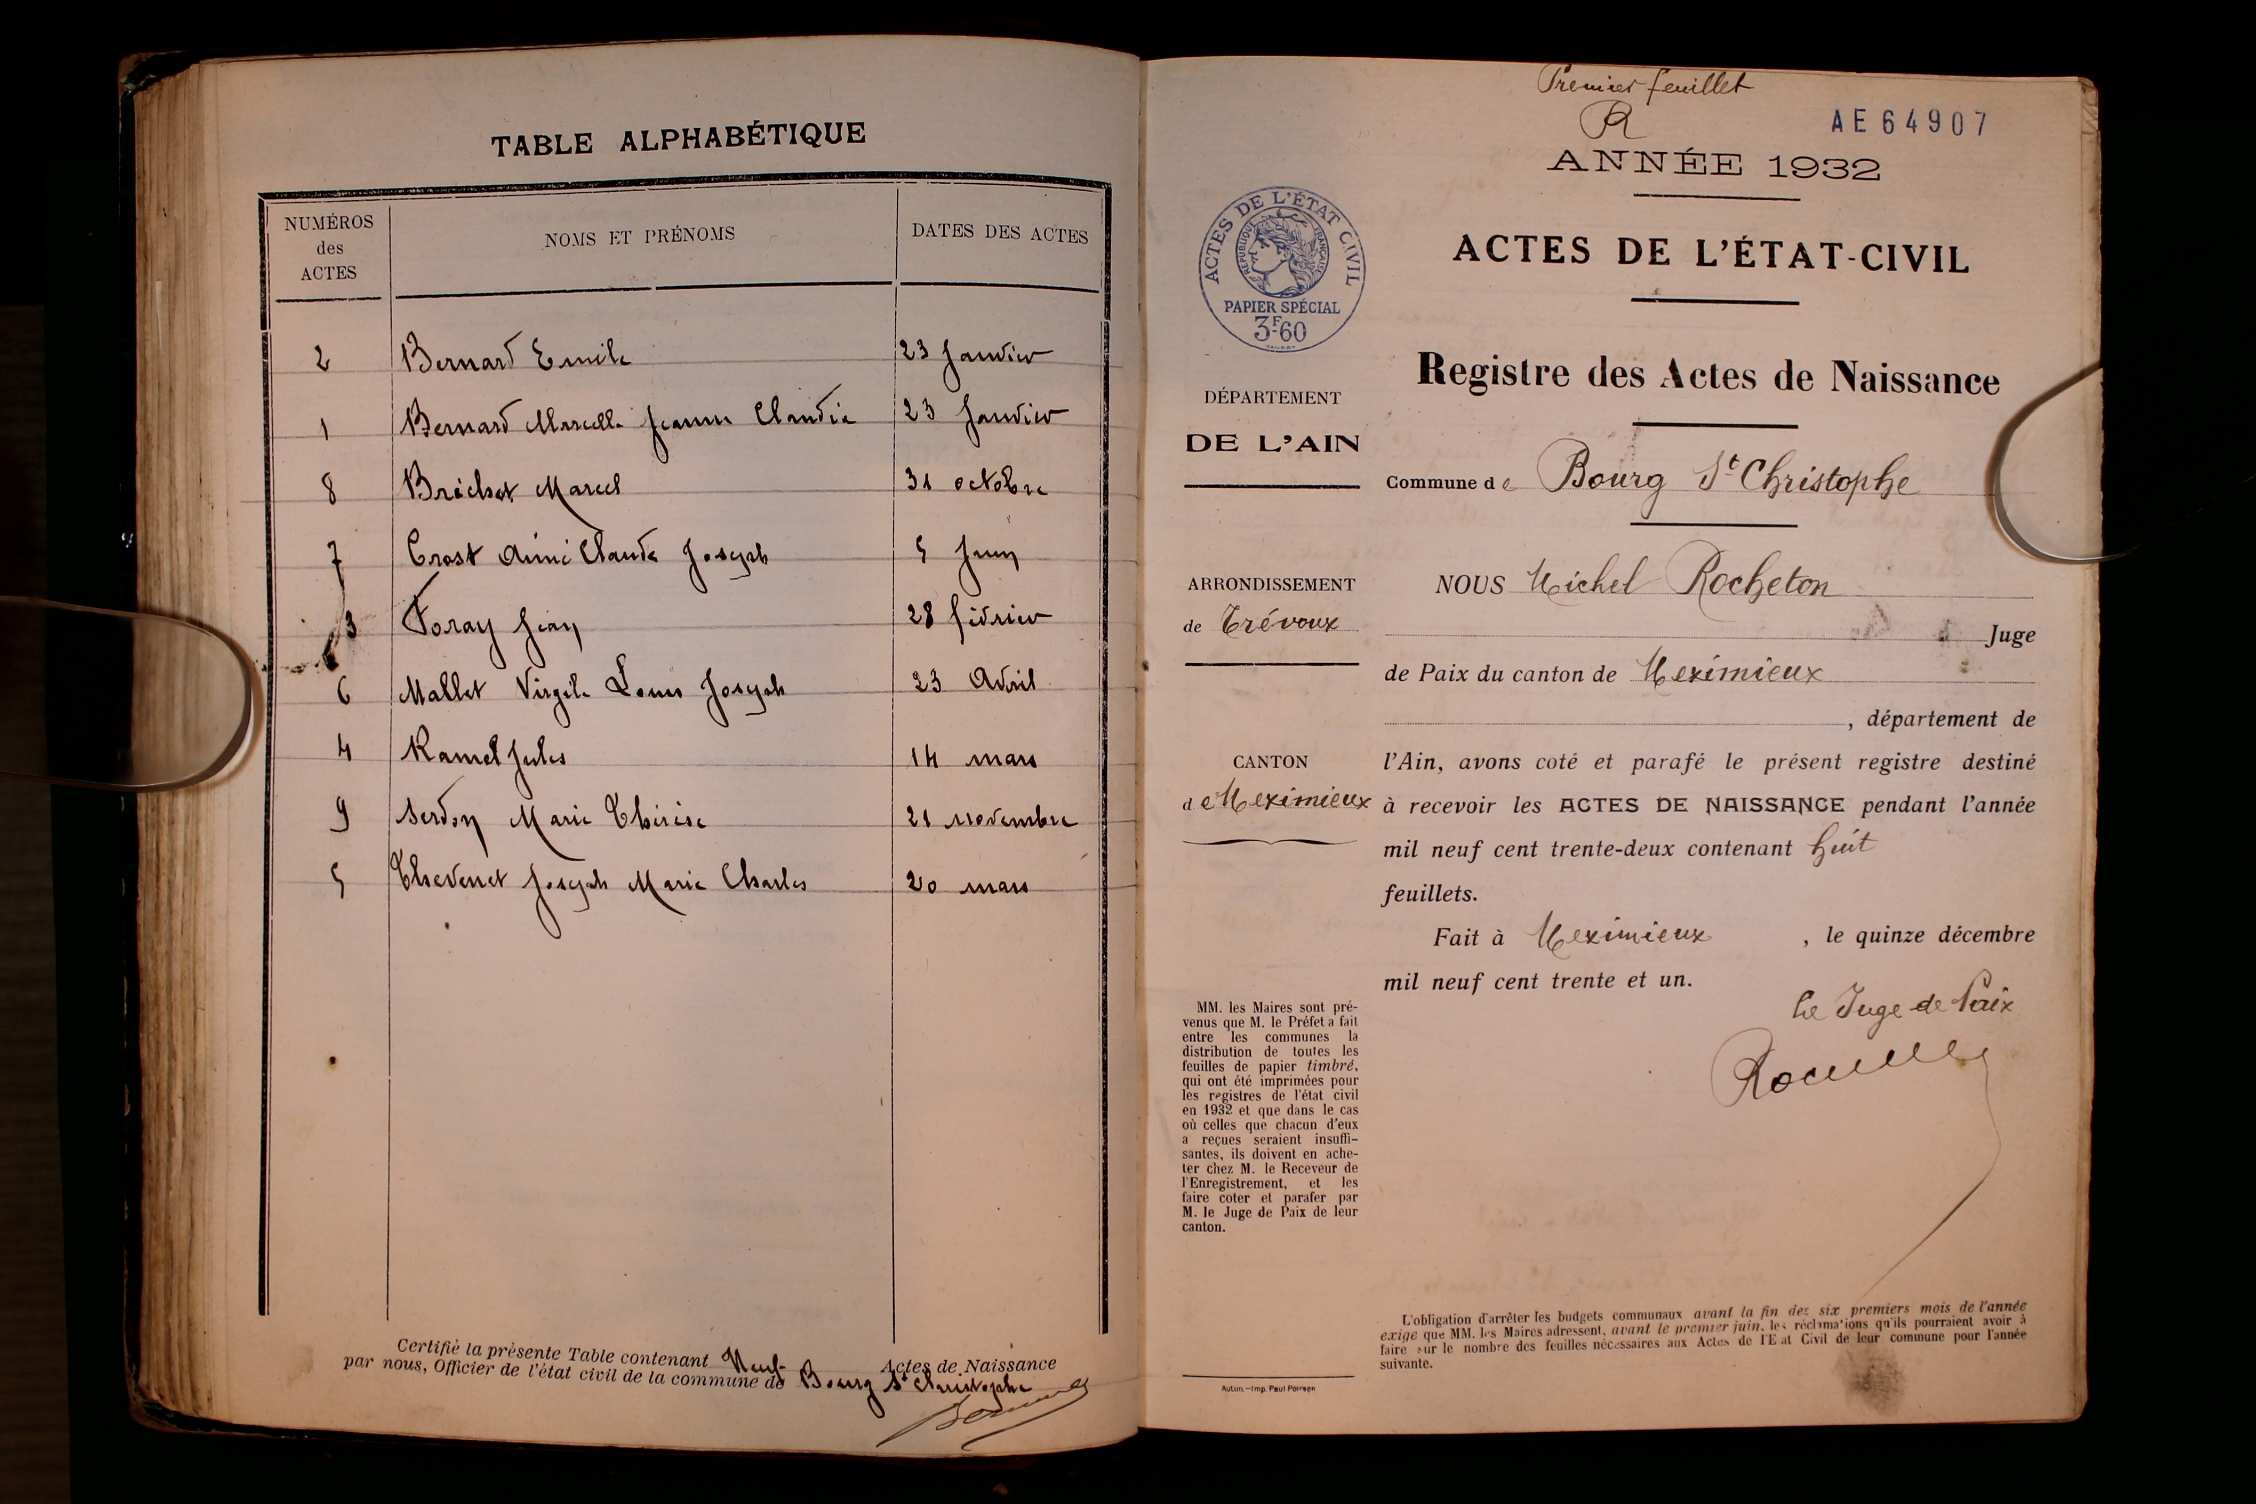 TABLE ALPHABÉTIQUE
NUMÉROS
des
ACTES
NOMS ET PRÉNOMS
DATES DES ACTES
2 Bernard Emile 23 Janvier
1 Bernard Marcelle Jeanne Claudia 23 Janvier
8 Bréchet Marcel 31 octobre
7 Crost Aimé Claude Joseph 5 Juin
3 Foray Jean 28 février
6 Mallet Virgile Louis Joseph 23 Avril
4 Ramel Jules 14 mars
9 Serdon Marie Thérèse 21 novembre
5 Thevenet Joseph Marie Charles 20 mars
Certifié la présente Table contenant Neuf Actes de Naissance
par nous, Officier de l'état civil de la commune de Bourg St Christophe
Premier feuillet
R
AE 64907
ANNÉE 1932
ACTES DE L'ÉTAT CIVIL
RÉPUBLIQUE FRANÇAISE
PAPIER SPÉCIAL
3F60
ACTES DE L'ÉTAT-CIVIL
Registre des Actes de Naissance
DÉPARTEMENT
DE L'AIN
Commune de Bourg St Christophe
ARRONDISSEMENT
de Trévoux
CANTON
de Meximieux
NOUS Michel Rocheton
Juge
de Paix du canton de Meximieux
, département de
l'Ain, avons coté et parafé le présent registre destiné
à recevoir les ACTES DE NAISSANCE pendant l'année
mil neuf cent trente-deux contenant huit
feuillets.
Fait à Meximieux , le quinze décembre
mil neuf cent trente et un.
Le Juge de Paix
MM. les Maires sont pré-
venus que M. le Préfet a fait
entre les communes la
distribution de toutes les
feuilles de papier timbré,
qui ont été imprimées pour
les registres de l'état civil
en 1932 et que dans le cas
où celles que chacun d'eux
a reçues seraient insuffi-
santes, ils doivent en ache-
ter chez M. le Receveur de
l'Enregistrement, et les
faire coter et parafer par
M. le Juge de Paix de leur
canton.
Autun.—Imp. Paul Porrsen
L'obligation d'arrêter les budgets communaux avant la fin des six premiers mois de l'année
exige que MM. les Maires adressent, avant le premier juin, les réclamations qu'ils pourraient avoir à
faire sur le nombre des feuilles nécessaires aux Actes de l'Etat Civil de leur commune pour l'année
suivante.